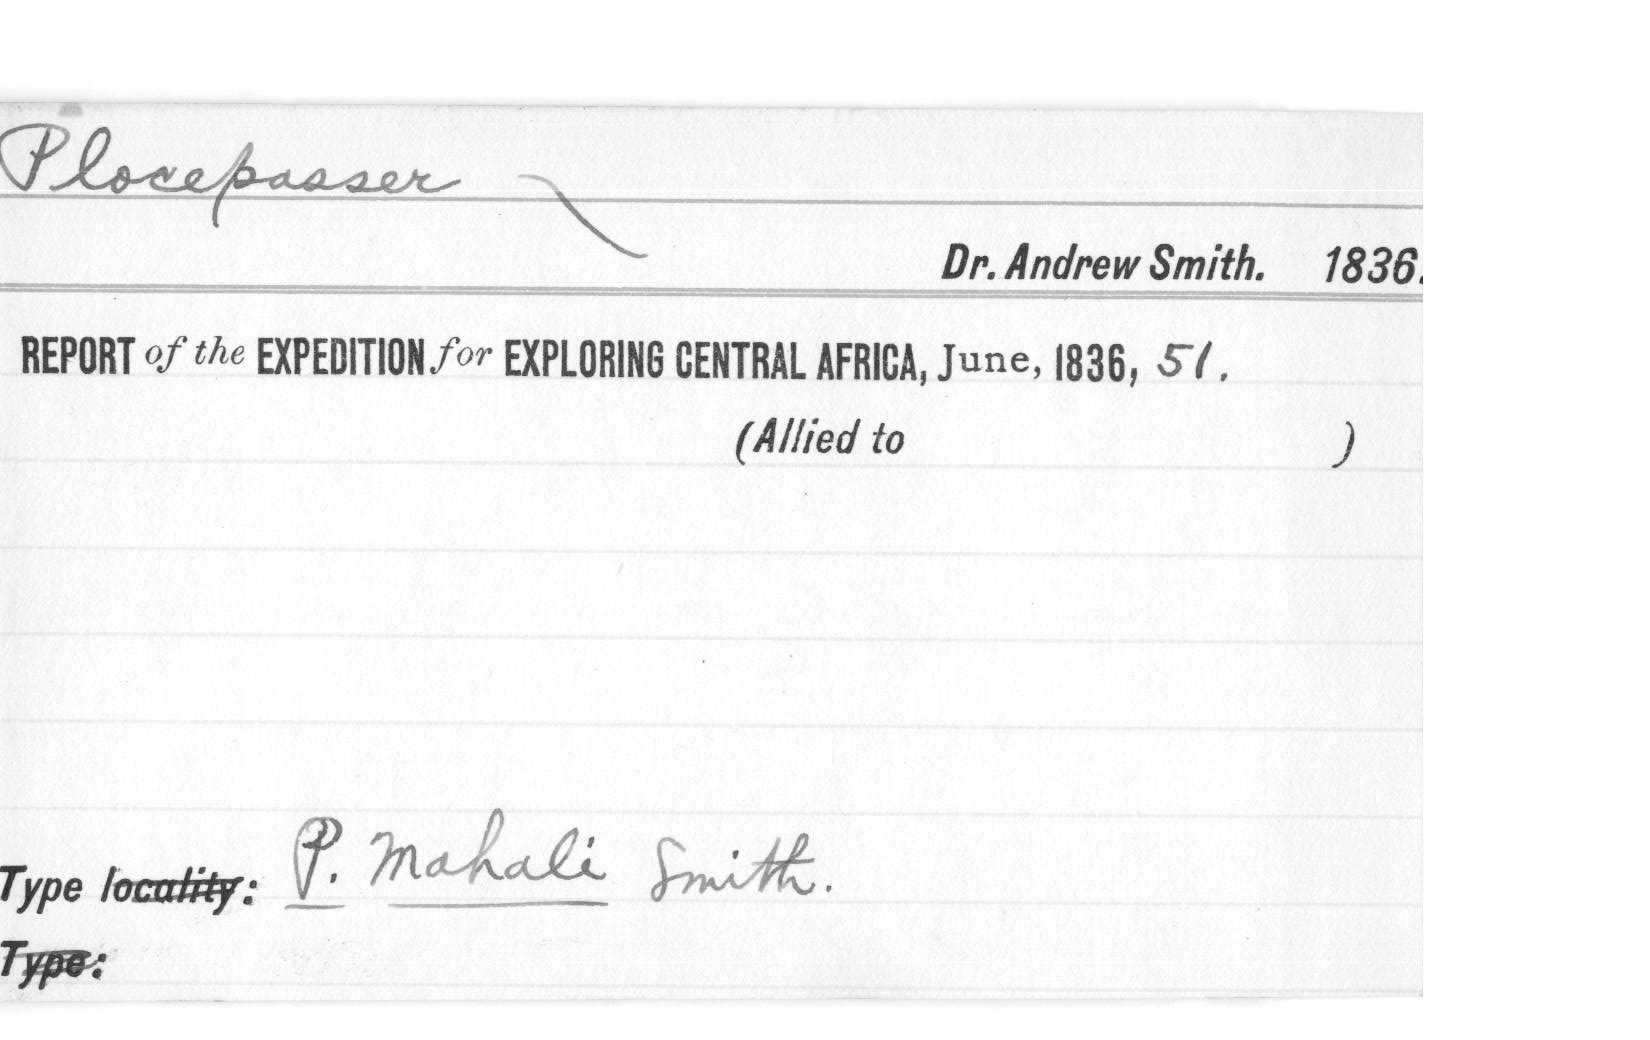 Plocepasser
Dr. Andrew Smith. 1836.
REPORT of the EXPEDITION for EXPLORING CENTRAL AFRICA, June, 1836, 51.
(Allied to )
Type locality: P. Mahali Smith.
Type: